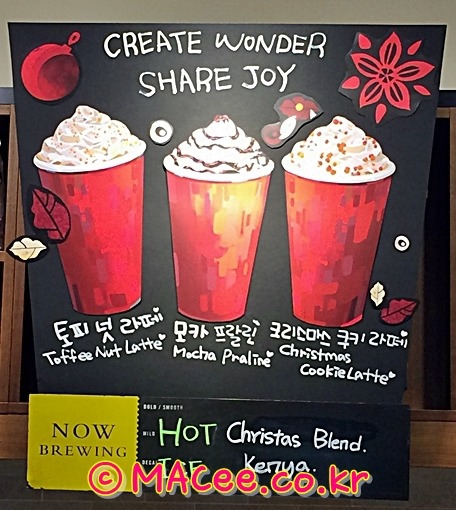 CREATE WONDER
SHARE JOY
토피 넛 라떼
Toffee Nut Latte
모카 프랄린
Mocha Praline
크리스마스 쿠키 라떼
Christmas
Cookie Latte
NOW
BREWING
BOLD / SMOOTH
MILD
DECAF
HOT Christas Blend.
ICE Kenya.
© MACee.co.kr